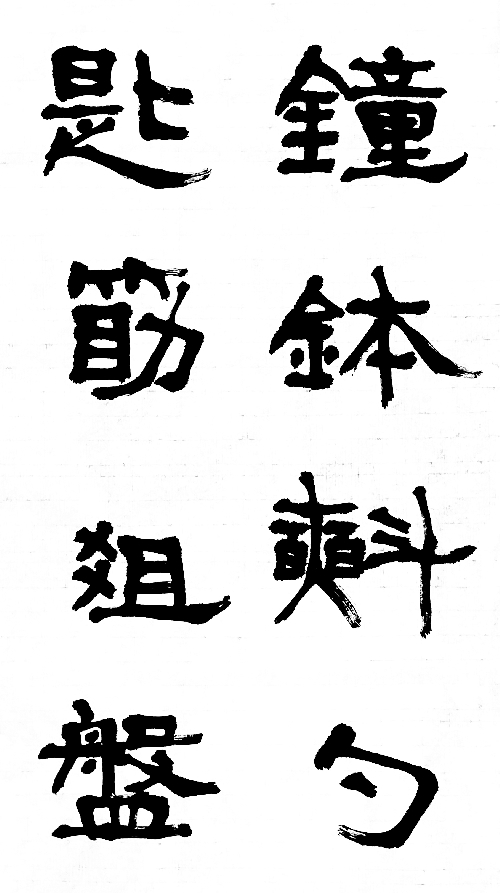 鐘鉢㪺勺
匙筯俎盤